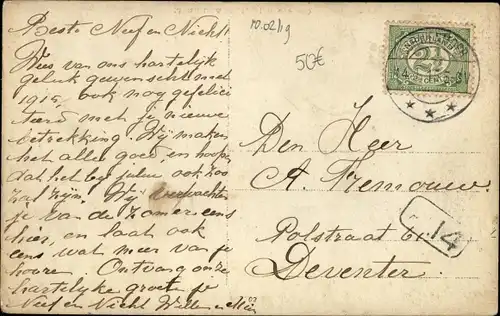 Beste Neef en Nicht!
Wees van ons hartelijk
geluk gewenscht met
1915, ook nog gefelici
teerd met je nieuwe
betrekking. Wij maken
het allen goed, en hopen
dat het bij jullie ook zoo
zal zijn. Wij verwachten
je van de zomer eens
hier, en laat ook
eens wat meer van je
hooren. Ontvang onze
hartelijke groeten je
Neef en Nicht Willem en Mien
10.02/19
50€
2½
Den Heer
A.
Polstraat 61
Deventer.
14